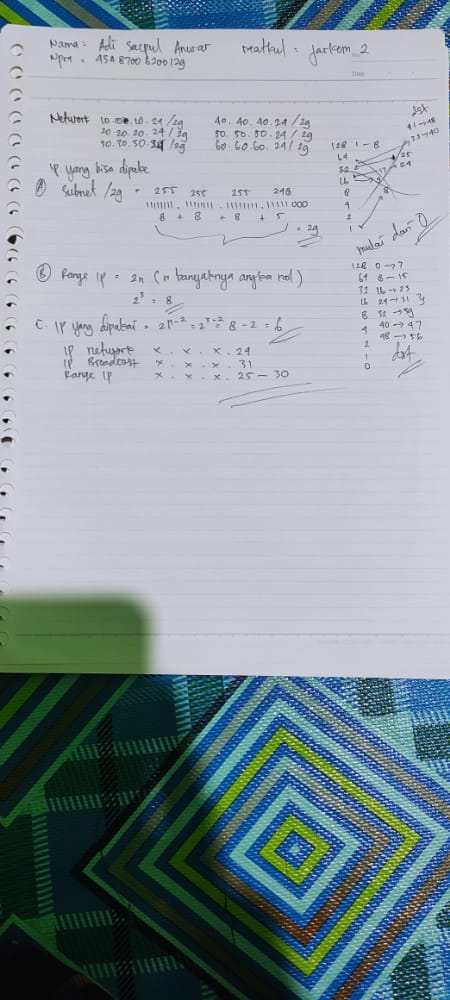 Nama : Adi Saepul Anwar matkul : jarkom 2
Npm : 
Network 10.10.10.24/29 40.40.40.24/29
20.20.20.24/29 50.50.50.24/29
30.30.30.24/29 60.60.60.24/29
IP yang bisa dipake
A Subnet /29 = 255 255 255 248
11111111.11111111.11111111.11111000
8 + 8 + 8 + 5
= 29
B Range IP = 2n (n banyaknya angka nol)
2³ = 8
C. IP yang dipakai = 2n-2 = 2³-2 = 8 - 2 = 6
IP network x . x . x . 24
IP Broadcast x . x . x . 31
Range IP x . x . x . 25 - 30
dst
41 → 48
33 → 40
128 1 - 8
64
32 25
16 24
8
4
2
1
mulai dari 0
128 0 → 7
64 8 - 15
32 16 → 23
16 24 → 31
8 32 → 39
4 40 → 47
2 48 → 56
1 dst
0